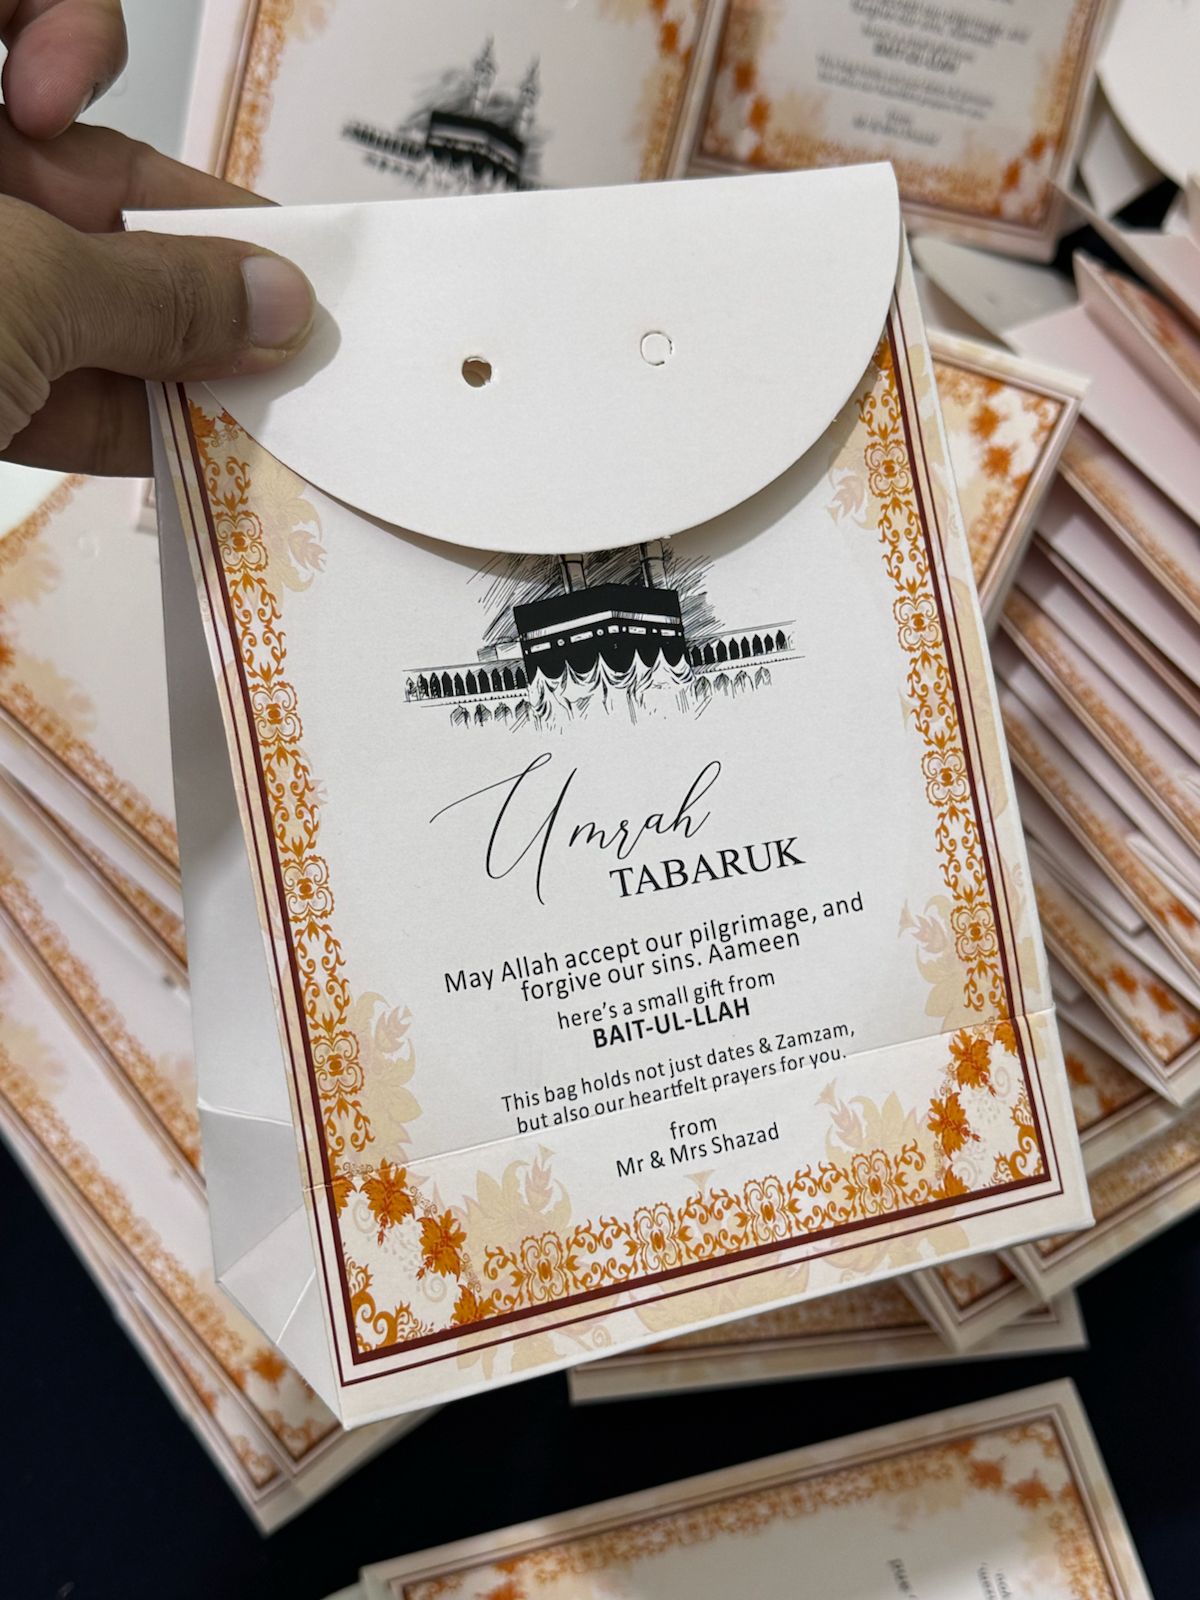 Umrah
TABARUK
May Allah accept our pilgrimage, and
forgive our sins. Aameen
here's a small gift from
BAIT-UL-LLAH
This bag holds not just dates & Zamzam,
but also our heartfelt prayers for you.
from
Mr & Mrs Shazad